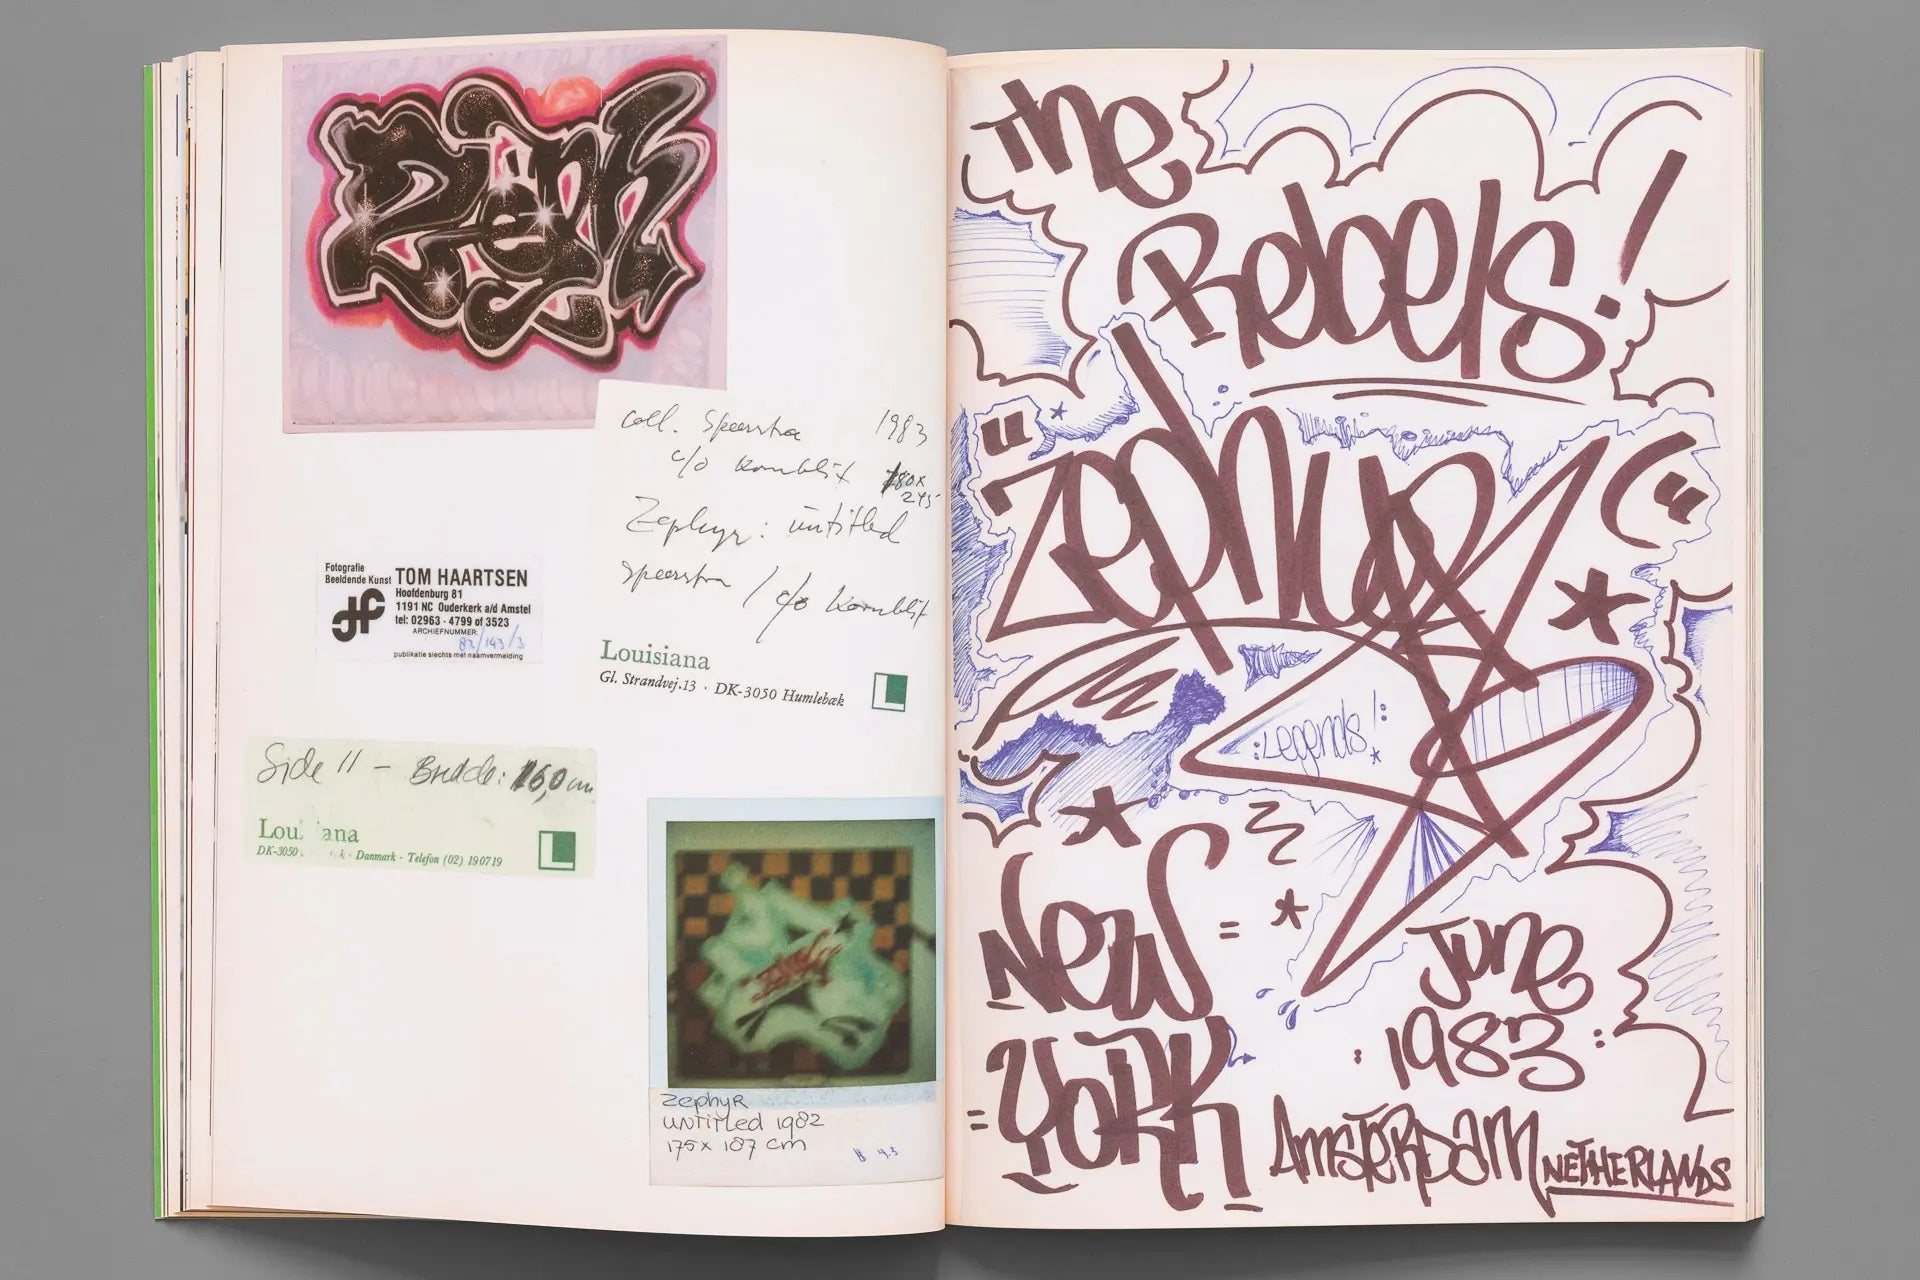 Zeph
coll. Speerstra 1983
c/o Kornblit 180x
245
Zephyr: untitled
Speerstra / c/o Kornblit
Louisiana
Gl. Strandvej.13 · DK-3050 Humlebæk
Fotografie
Beeldende Kunst TOM HAARTSEN
Hoofdenburg 81
1191 NC Ouderkerk a/d Amstel
tel: 02963 - 4799 of 3523
ARCHIEFNUMMER:
83/143/3
publikatie slechts met naamvermelding
Side 11 - Bredde: 16,0 cm
Lou iana
DK-3050 k · Danmark · Telefon (02) 190719
Zephyr
untitled 1982
175 x 187 cm
4.3
The
Rebels!
"Zephyr"
Legends!
New
York
June
1983
Amsterdam Netherlands